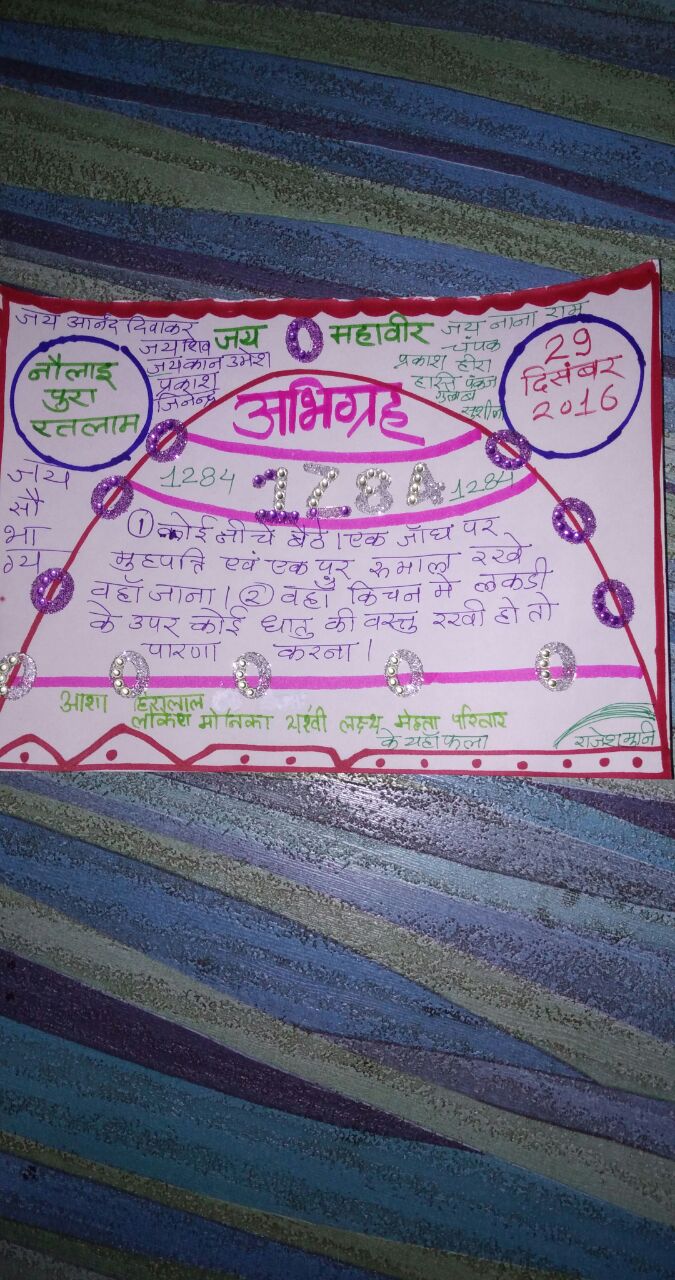 जय आनंद दिवाकर
जय शिव
जय कान उमेश
प्रकाश
जिनेन्द्र
जय 0 महावीर
जय नाना राम
चंपक
प्रकाश हीरा
हस्ति पंकज
गुलाब
सुशील
नौलाइ
पुरा
रतलाम
29
दिसंबर
2016
अभिग्रह
1284 1284 1284
जय
सौ
भा
ग्य
① कोई नीचे बैठे। एक जाँघ पर
मुहपति एवं एक पर रुमाल रखे
वहाँ जाना। ② वहाँ किचन मे लकडी
के उपर कोई धातु की वस्तु रखी हो तो
पारणा करना।
आशा हीरालाल
लोकेश मोनिका यश्वी लक्ष्य मेहता परिवार
के यहाँ फला
राजेश मुनि